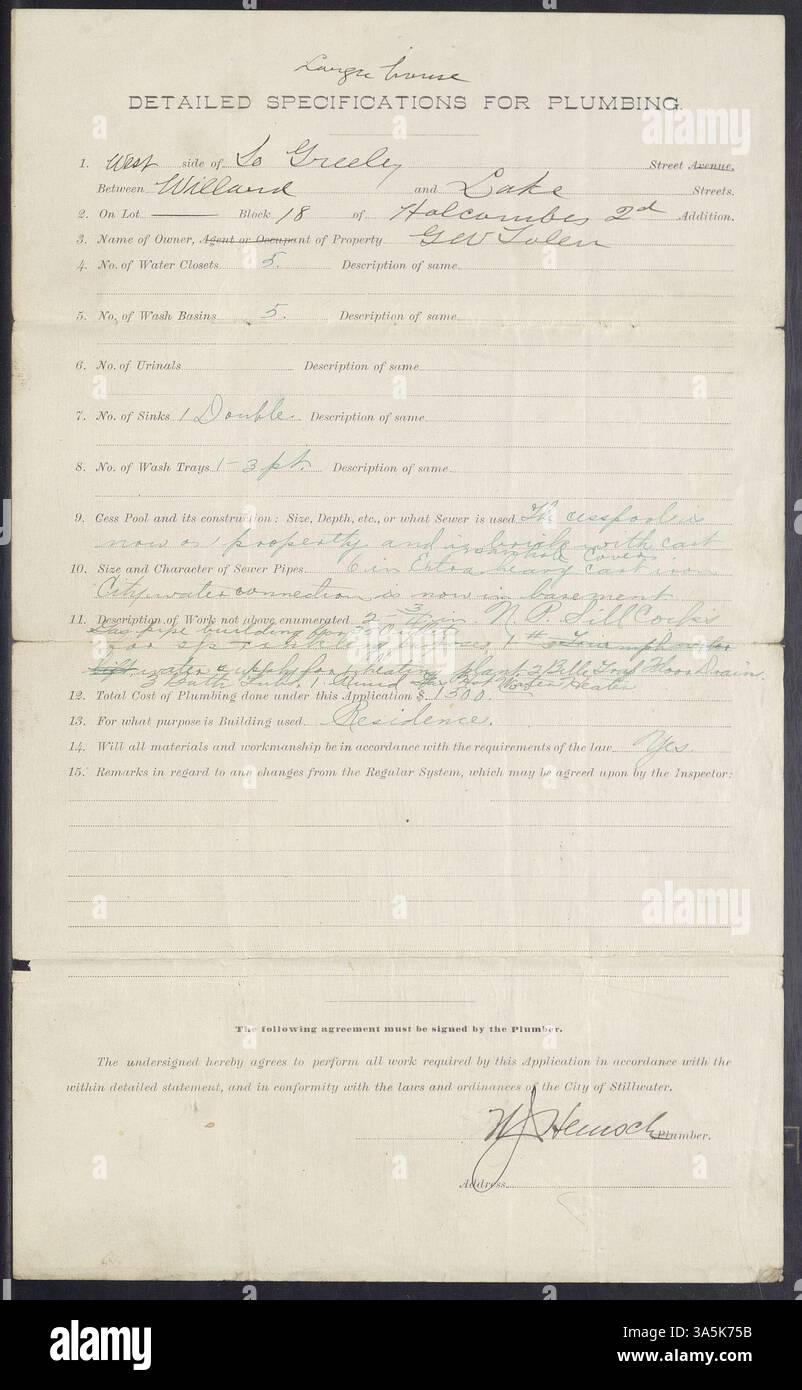 Large house
DETAILED SPECIFICATIONS FOR PLUMBING.
1. West side of So Greeley Street Avenue,
Between Willard and Lake Streets.
2. On Lot Block 18 of Holcombes 2d Addition.
3. Name of Owner, Agent or Occupant of Property G W
4. No. of Water Closets 5. Description of same
5. No. of Wash Basins 5. Description of same
6. No. of Urinals Description of same
7. No. of Sinks 1 Double. Description of same
8. No. of Wash Trays 1-3 pt. Description of same
9. Cess Pool and its construction: Size, Depth, etc., or what Sewer is used The cesspool is
now on property and is brick with cast
manhole Cover
10. Size and Character of Sewer Pipes 6 in Extra heavy cast iron
City water connection is now in basement
11. Description of Work not above enumerated 2 - 3/4 in. N. P. Sill Cocks
Gas pipe building
for sprinkling purposes 1
water supply for heating plant 2 Bell Trap Floor Drain.
3 Bath Tubs. 1 Water Heater
12. Total Cost of Plumbing done under this Application $ 1500.
13. For what purpose is Building used Residence.
14. Will all materials and workmanship be in accordance with the requirements of the law Yes.
15. Remarks in regard to any changes from the Regular System, which may be agreed upon by the Inspector:
The following agreement must be signed by the Plumber.
The undersigned hereby agrees to perform all work required by this Application in accordance with the
within detailed statement, and in conformity with the laws and ordinances of the City of Stillwater.
W J Heinsch Plumber.
Address
alamy
Image ID: 3A5K75B
www.alamy.com